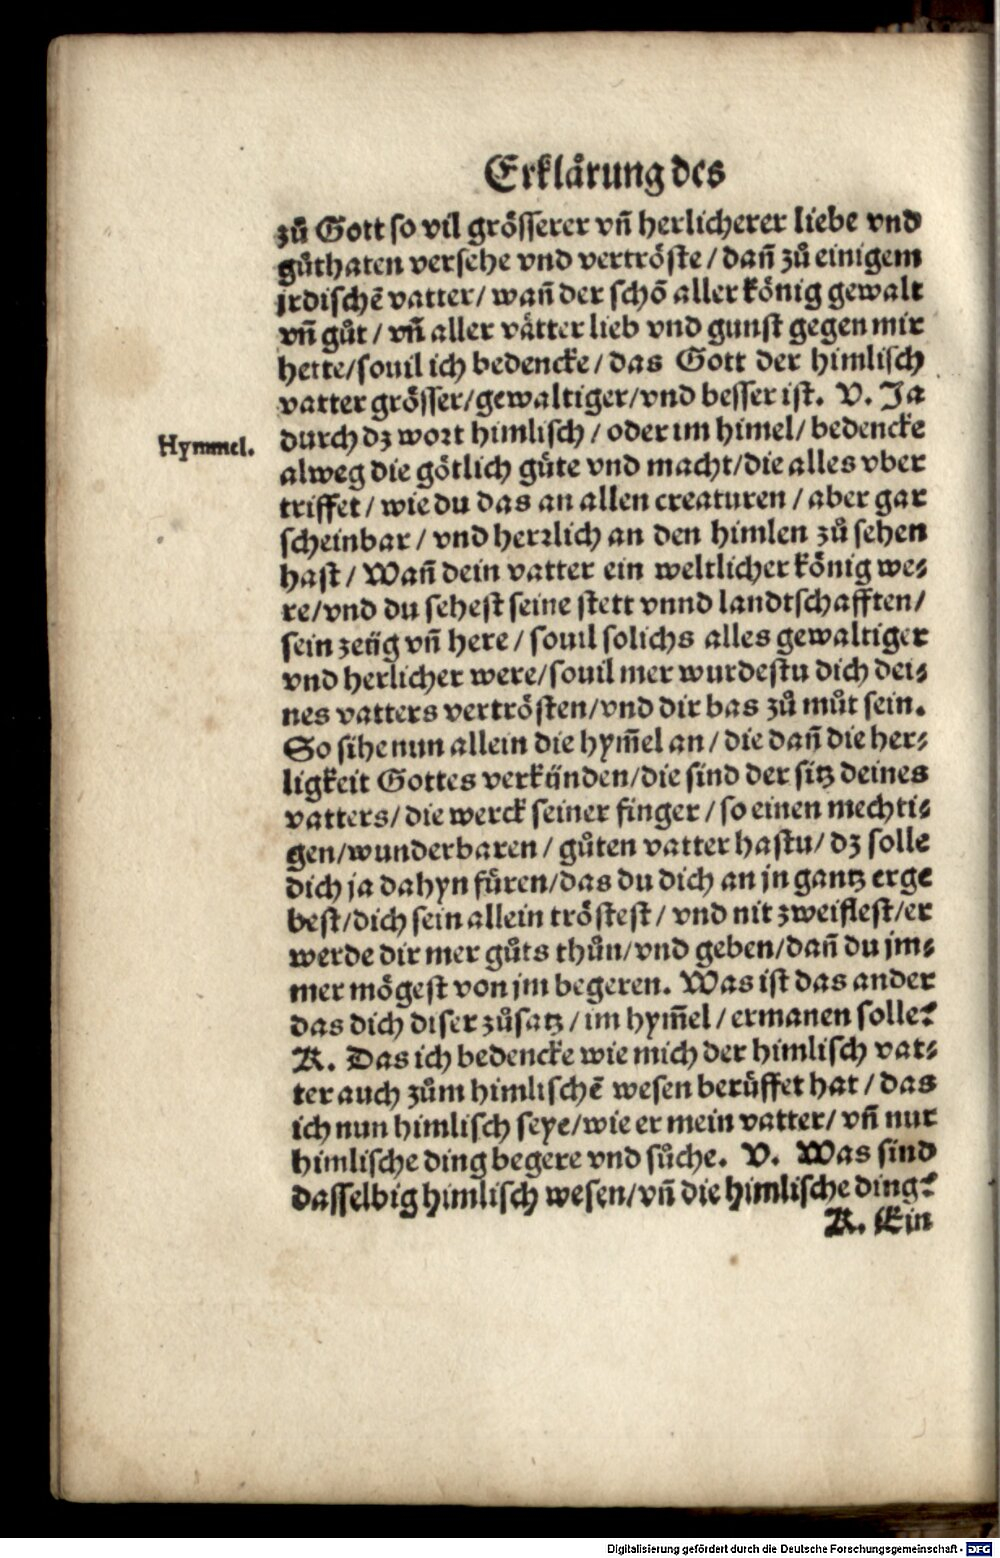 Erklårung des
zů Gott so vil grösserer vñ herlicherer liebe vnd
gůthaten versehe vnd vertröste / dañ zů einigem
jrdischẽ vatter / wañ der schõ aller könig gewalt
vñ gůt / vñ aller våtter lieb vnd gunst gegen mir
hette / souil ich bedencke / das Gott der himlisch
vatter grösser / gewaltiger / vnd besser ist. V. Ja
Hymmel.
durch dz wort himlisch / oder im himel / bedencke
alweg die götlich güte vnd macht / die alles vber
triffet / wie du das an allen creaturen / aber gar
scheinbar / vnd herrlich an den himlen zů sehen
hast / Wañ dein vatter ein weltlicher könig we⸗
re / vnd du sehest seine stett vnnd landtschafften /
sein zeüg vñ here / souil solichs alles gewaltiger
vnd herlicher were / souil mer wurdestu dich dei⸗
nes vatters vertrösten / vnd dir bas zů můt sein.
So sihe nun allein die hym̃el an / die dañ die her⸗
ligkeit Gottes verkünden / die sind der sitz deines
vatters / die werck seiner finger / so einen mechti⸗
gen / wunderbaren / gůten vatter hastu / dz solle
dich ja dahyn füren / das du dich an jn gantz erge
best / dich sein allein tröstest / vnd nit zweiflest / er
werde dir mer gůts thůn / vnd geben / dañ du jm⸗
mer mögest von jm begeren. Was ist das ander
das dich diser zůsatz / im hym̃el / ermanen solle?
K. Das ich bedencke wie mich der himlisch vat⸗
ter auch zům himlischẽ wesen berüffet hat / das
ich nun himlisch seye / wie er mein vatter / vñ nur
himlische ding begere vnd sůche. V. Was sind
dasselbig himlisch wesen / vñ die himlische ding?
K. Ein
Digitalisierung gefördert durch die Deutsche Forschungsgemeinschaft - DFG